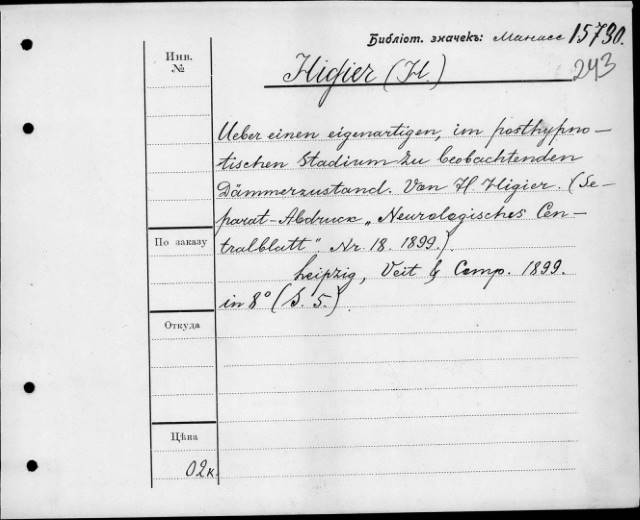 Библіот. значекъ: Манасс 15730.
243
Инв. №
Higier (H.)
Ueber einen eigenartigen, im posthypno-
tischen Stadium zu beobachtenden
Dämmerzustand. Von H. Higier. (Se-
parat-Abdruck „Neurologisches Cen-
tralblatt". Nr. 18. 1899.)
По заказу
Leipzig, Veit & Comp. 1899.
in 8° (S. 5.)
Откуда
Цѣна
02к.